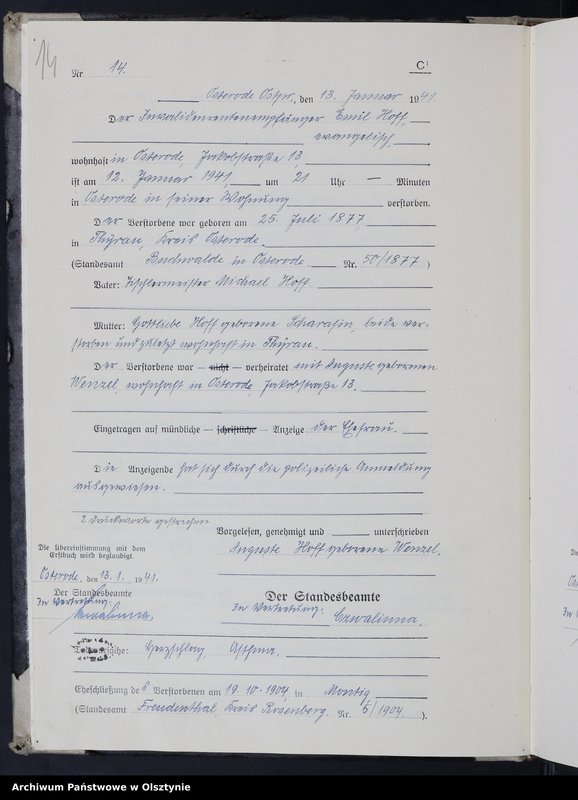 14
Nr. 14.
C¹
Osterode Ostpr., den 13. Januar 1941.
Der Invalidenrentenempfänger Emil Hoff,
evangelisch,
wohnhaft in Osterode, Jakobstraße 13,
ist am 12. Januar 1941, um 21 Uhr — Minuten
in Osterode in seiner Wohnung verstorben.
Der Verstorbene war geboren am 25. Juli 1877
in Thyrau, Kreis Osterode.
(Standesamt Buchwalde in Osterode Nr. 50/1877)
Vater: Tischlermeister Michael Hoff.
Mutter: Gottliebe Hoff geborene Scharafin, beide ver-
storben und zuletzt wohnhaft in Thyrau.
Der Verstorbene war — nicht — verheiratet mit Auguste geborenen
Wenzel, wohnhaft in Osterode, Jakobstraße 13.
Eingetragen auf mündliche — schriftliche — Anzeige der Ehefrau.
Die Anzeigende hat sich durch die polizeiliche Anmeldung
ausgewiesen.
2 Druckworte gestrichen
Vorgelesen, genehmigt und unterschrieben
Auguste Hoff geborene Wenzel.
Die Übereinstimmung mit dem
Erstbuch wird beglaubigt.
Osterode, den 13.1. 1941.
Der Standesbeamte
In Vertretung:
Der Standesbeamte
In Vertretung: Czwalinna.
Todesursache: Herzschlag, Asthma.
Eheschließung des Verstorbenen am 19.10.1904, in Montig
(Standesamt Freudenthal, Kreis Rosenberg. Nr. 5/1904.).
Archiwum Państwowe w Olsztynie